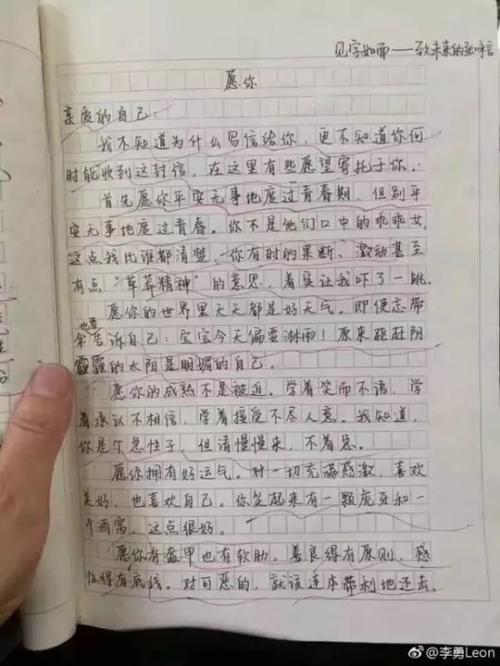 见字如面——致未来的张唯言
愿你
亲爱的自己:
我不知道为什么写信给你,更不知道你何
时能收到这封信,在这里有些愿望寄托于你。
首先愿你平安无事地度过青春期,但别平
安无事地度过青春。你不是他们口中的乖乖女,
这点我比谁都清楚,你有时的果断、激动甚至
有点“草莽精神”的意思,着实让我吓了一跳。
愿你的世界里天天都是好天气。即使忘带
伞也要告诉自己:宝宝今天偏要淋雨!原来驱赶阴
霾的太阳是明媚的自己。
愿你的成熟不是被迫。学着笑而不语,学
着承认不相信,学着接受不尽人意。我知道,
你是个急性子,但请慢慢来,不着急。
愿你拥有好运气。对一切充满感激,喜欢
美好,也喜欢自己。你笑起来有一颗虎牙和一
个酒窝,这点很好。
愿你有盔甲也有软肋。善良得有原则,感
性得有底线。对可恶的,就该连本带利地还击。
@李勇Leon